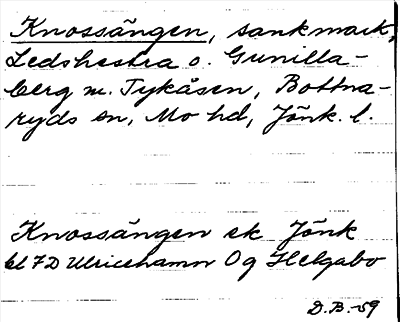 Knossängen, sankmark,
Ledshestra o. Gunilla-
berg m. Tykåsen, Bottna-
ryds sn, Mo hd, Jönk. l.
Knossängen ek Jönk
bl 7D Ulricehamn Og Helgabo
D.B.-59